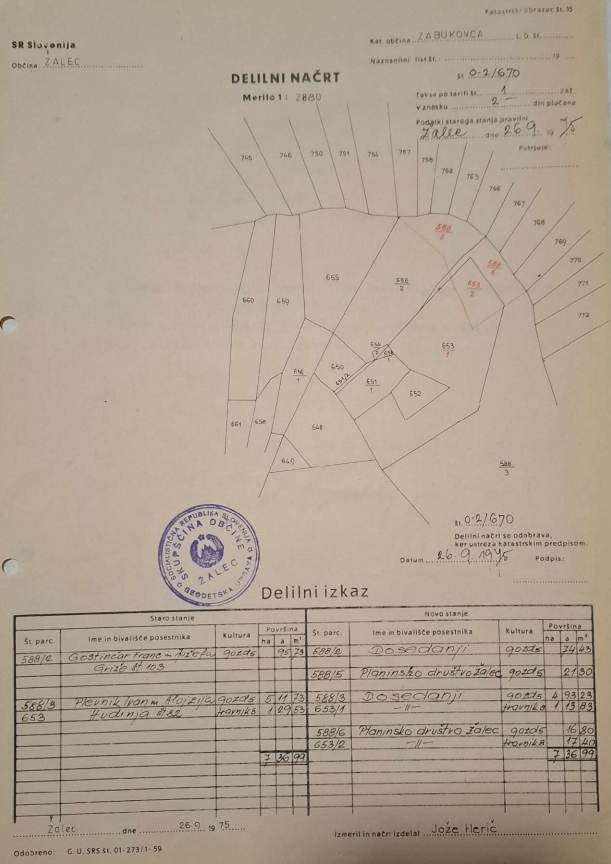 Katastrski obrazec št. 15
SR Slovenija
Občina: ŽALEC
Kat. občina ZABUKOVCA L. D. št.
Naznanilni list št.: 19
DELILNI NAČRT
Merilo 1: 2880
št 0-2/670
Taksa po tarifi št. 1 ZAT
v znesku 2.- din plačana
Podatki starega stanja pravilni
Žalec dne 26.9. 1975
Potrjuje:
745 746 750 751 754 757 758 762 765 766 767 768 769 770 771 772
588/5
588/6
655 588/2 653/2
660 659
653/1
650 651/1 652
661 658 648
649
588/3
SOCIALISTIČNA REPUBLIKA SLOVENIJA
SKUPŠČINA OBČINE
ŽALEC
GEODETSKA UPRAVA
št. 0-2/670
Delilni načrt se odobrava,
ker ustreza katastrskim predpisom.
Datum 26.9.1975 Podpis:
Delilni izkaz
Staro stanje Novo stanje
Št. parc. Ime in bivališče posestnika Kultura Površina ha a m² Št. parc. Ime in bivališče posestnika Kultura Površina ha a m²
588/2 Gostinčar Franc in Jožefa gozd5 95 73 588/2 Dosedanji gozd5 74 43
Griže št 103
588/5 Planinsko društvo Žalec gozd5 21 30
588/3 Plevnik Ivan in Alojzija gozd5 5 11 73 588/3 Dosedanji gozd5 4 93 23
653 Hudinja št 22 travnik8 1 29 53 653/1 -||- travnik8 1 13 83
588/6 Planinsko društvo Žalec gozd5 16 80
653/2 -||- travnik8 17 40
7 36 99 7 36 99
Žalec dne 26.9. 1975 Izmeril in načrt izdelal Jože Herič
Odobreno: G. U. SRS št. 01-273/1-59